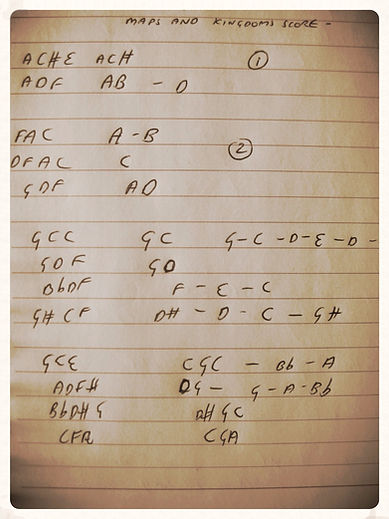 MAPS AND KINGDOMS SCORE -
ACHE ACH ①
ADF AB - D
FAC A - B
DFAC C ②
GDF AD
GCC GC G - C - D - E - D -
GDF GD
BbDF F - E - C
GH CF DH - D - C - GH
GCE CGC - Bb - A
ADFH DG - G - A - Bb
BbDH G DH GC
CFA CGA